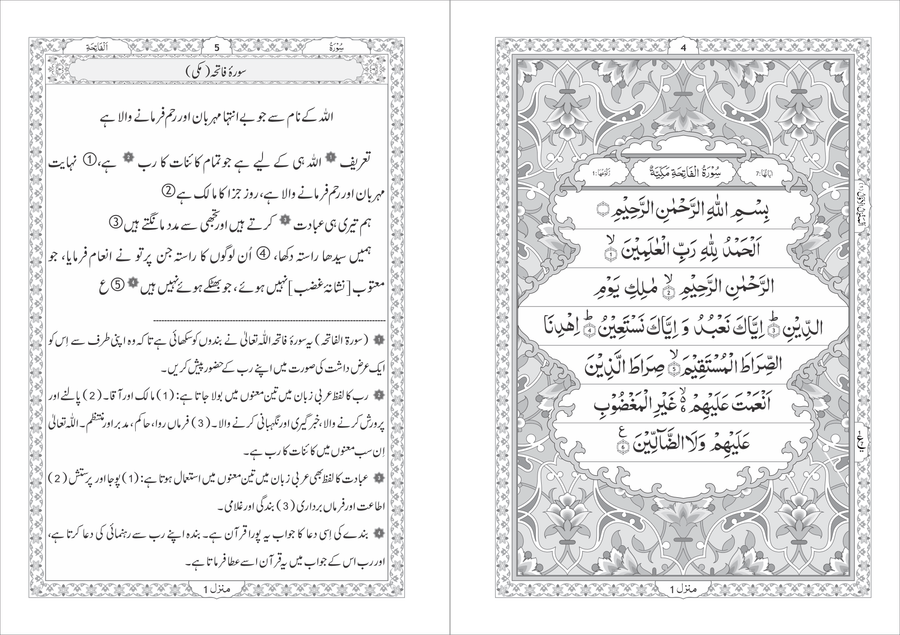 4
سُوْرَةُ الْفَاتِحَةِ مَكِّيَّةٌ
بِسْمِ اللّٰهِ الرَّحْمٰنِ الرَّحِيْمِ
اَلْحَمْدُ لِلّٰهِ رَبِّ الْعٰلَمِيْنَ ۙ 1
الرَّحْمٰنِ الرَّحِيْمِ ۙ 2 مٰلِكِ يَوْمِ
الدِّيْنِ ؕ 3 اِيَّاكَ نَعْبُدُ وَ اِيَّاكَ نَسْتَعِيْنُ ؕ 4 اِهْدِنَا
الصِّرَاطَ الْمُسْتَقِيْمَ ۙ 5 صِرَاطَ الَّذِيْنَ
اَنْعَمْتَ عَلَيْهِمْ ۙ غَيْرِ الْمَغْضُوْبِ
عَلَيْهِمْ وَلَا الضَّآلِّيْنَ ع 6
منزل 1
سُوْرَةُ 5 اَلْفَاتِحَةِ
سورۂ فاتحہ (مکی)
اللہ کے نام سے جو بے انتہا مہربان اور رحم فرمانے والا ہے
تعریف ٭ اللہ ہی کے لیے ہے جو تمام کائنات کا رب ٭ ہے، ① نہایت
مہربان اور رحم فرمانے والا ہے، روز جزا کا مالک ہے ②
ہم تیری ہی عبادت ٭ کرتے ہیں اور تجھی سے مدد مانگتے ہیں ③
ہمیں سیدھا راستہ دکھا، ④ اُن لوگوں کا راستہ جن پر تو نے انعام فرمایا، جو
معتوب [نشانۂ غضب] نہیں ہوئے، جو بھٹکے ہوئے نہیں ہیں ٭ ⑤ ع
٭ (سورۃ الفاتحہ) یہ سورۂ فاتحہ اللہ تعالیٰ نے بندوں کو سکھائی ہے تاکہ وہ اپنی طرف سے اِس کو
ایک عرض داشت کی صورت میں اپنے رب کے حضور پیش کریں۔
٭ رب کا لفظ عربی زبان میں تین معنوں میں بولا جاتا ہے: (1) مالک اور آقا۔ (2) پالنے اور
پرورش کرنے والا، خبر گیری اور نگہبانی کرنے والا۔ (3) فرماں روا، حاکم، مدبر اور منتظم۔ اللہ تعالیٰ
اِن سب معنوں میں کائنات کا رب ہے۔
٭ عبادت کا لفظ بھی عربی زبان میں تین معنوں میں استعمال ہوتا ہے: (1) پوجا اور پرستش (2)
اطاعت اور فرماں برداری (3) بندگی اور غلامی۔
٭ بندے کی اِسی دعا کا جواب یہ پورا قرآن ہے۔ بندہ اپنے رب سے رہنمائی کی دعا کرتا ہے،
اور رب اس کے جواب میں یہ قرآن اسے عطا فرماتا ہے۔
منزل 1